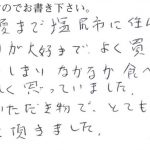 のでお書き下さい。
愛まで塩尻市に住ん
が大好きで よく買
しまり なかなか食べ
しく思っていました。
いただき物で、とても
頂きました。